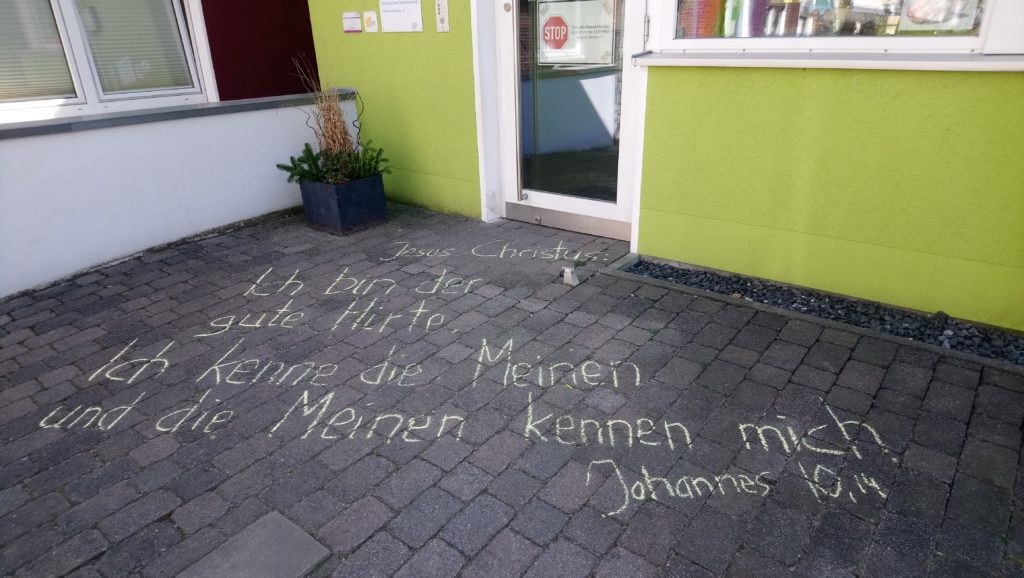 STOP
Jesus Christus:
Ich bin der
gute Hirte.
Ich kenne die Meinen
und die Meinen kennen mich
Johannes 10,14